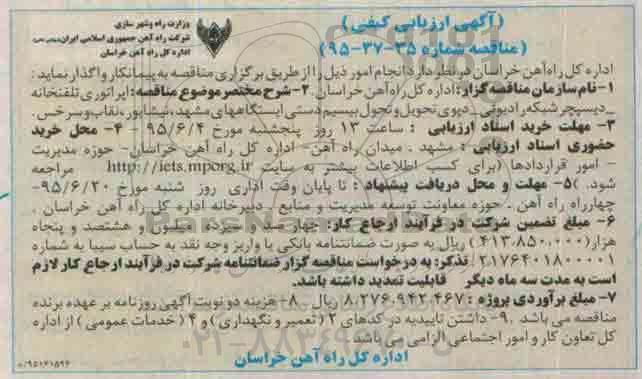 وزارت راه وشهر سازی
شرکت راه آهن جمهوری اسلامی ایران
اداره کل راه آهن خراسان
(آگهی ارزیابی کیفی)
(مناقصه شماره ۳۵-۳۷-۹۵)
اداره کل راه‌آهن خراسان درنظر دارد انجام امور ذیل را از طریق برگزاری مناقصه به پیمانکار واگذار نماید:
۱-نام سازمان مناقصه گزار: اداره کل راه‌آهن خراسان. ۲-شرح مختصر موضوع مناقصه: اپراتوری تلفنخانه
_دیسپچر شبکه رادیوئی_ دپوی تحویل و تحول بیسیم دستی ایستگاههای مشهد، نیشابور، نقاب و سرخس.
۳- مهلت خرید اسناد ارزیابی : ساعت ۱۳ روز پنجشنبه مورخ ۹۵/۶/۴ ۴- محل خرید
حضوری اسناد ارزیابی : مشهد . میدان راه آهن- اداره کل راه آهن خراسان- حوزه مدیریت
- امور قراردادها (برای کسب اطلاعات بیشتر به سایت http://iets.mporg.ir مراجعه
شود. )۵- مهلت و محل دریافت پیشنهاد : تا پایان وقت اداری روز شنبه مورخ ۹۵/۶/۲۰-
چهارراه راه آهن . حوزه معاونت توسعه مدیریت و منابع . دبیرخانه اداره کل راه آهن خراسان .
۶- مبلغ تضمین شرکت در فرآیند ارجاع کار: چهار صد و سیزده میلیون و هشتصد و پنجاه
هزار(۴۱۳،۸۵۰،۰۰۰) ریال به صورت ضمانتنامه بانکی یا واریز وجه نقد به حساب سیبا به شماره
۲۱۷۶۴۰۱۸۰۰۰۰۱ تذکر: به درخواست مناقصه گزار ضمانتنامه شرکت در فرآیند ارجاع کار لازم
است به مدت سه ماه دیگر قابلیت تمدید داشته باشد.
۷- مبلغ برآوردی پروژه : ۸،۲۷۶،۹۴۲،۴۶۷ ریال ۸- هزینه دو نوبت آگهی روزنامه بر عهده برنده
مناقصه می باشد .۹- داشتن تاییدیه در کدهای ۲ (تعمیر و نگهداری) و ۴ ( خدمات عمومی ) از اداره
کل تعاون کار و امور اجتماعی الزامی می باشد.
اداره کل راه آهن خراسان
ParsNamadData
۰۲۱-۸۸۳۴۹۶